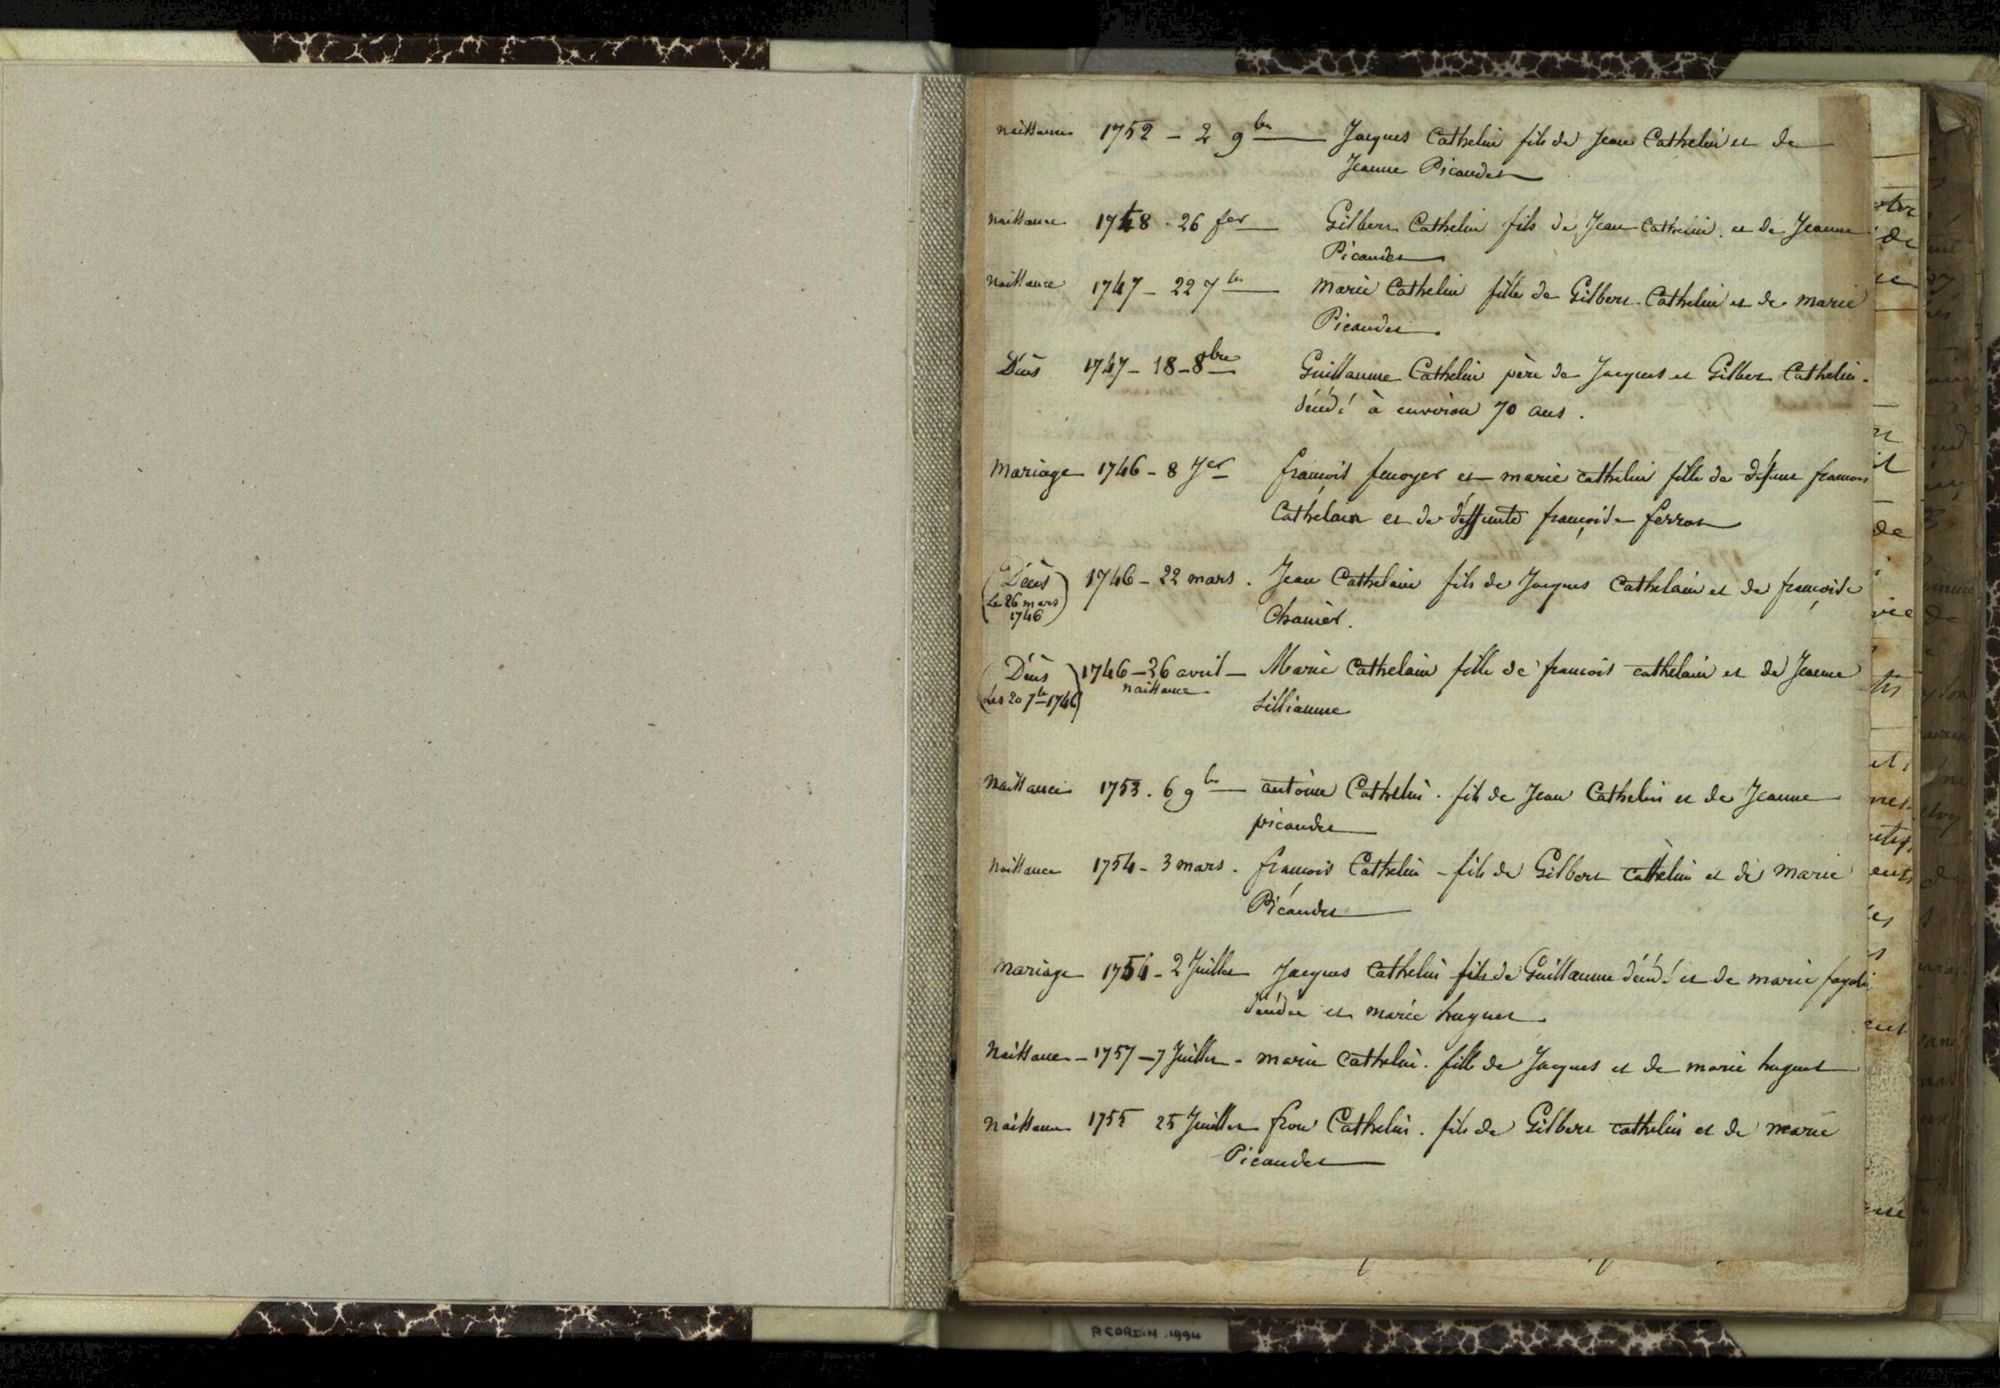 Naissance 1752 - 2 9bre Jacques Cathelin fils de Jean Cathelin et de
Jeanne Picandet
Naissance 1748 . 26 fer Gilbert Cathelin fils de Jean Cathelin . et de Jeanne
Picandet
Naissance 1747 - 22 7bre Marie Cathelin fille de Gilbert Cathelin et de marie
Picandet
Décès 1747 - 18 - 8bre Guillaume Cathelin père de Jacques et Gilbert Cathelin .
décédé à environ 70 ans .
Mariage 1746 - 8 Jer françois fenoyer et marie cathelin fille de défunt françois
Cathelain et de deffunte françoise ferrot
(Décès 1746 - 22 mars . Jean Cathelain fils de Jacques Cathelain et de françoise
Le 26 mars
1746) Chanier .
(Décès 1746 - 26 avril - Marie Cathelain fille de françois cathelain et de Jeanne
Les 20 7bre 1746) naissance
Lillianne
Naissance 1753 . 6 9bre antoine Cathelin . fils de Jean Cathelin et de Jeanne
picandet
Naissance 1754 - 3 mars . françois Cathelin - fils de Gilbert cathelin et de marie
Picandet
Mariage 1754 - 2 Juillet Jacques Cathelin fils de Guillaume décédé et de marie
décédée et marie huguet
Naissance - 1757 - 7 Juillet - marie Cathelin . fille de Jacques et de marie huguet
Naissance 1755 25 Juillet Cathelin . fils de Gilbert cathelin et de marie
Picandet
P. CORDIN . 1994